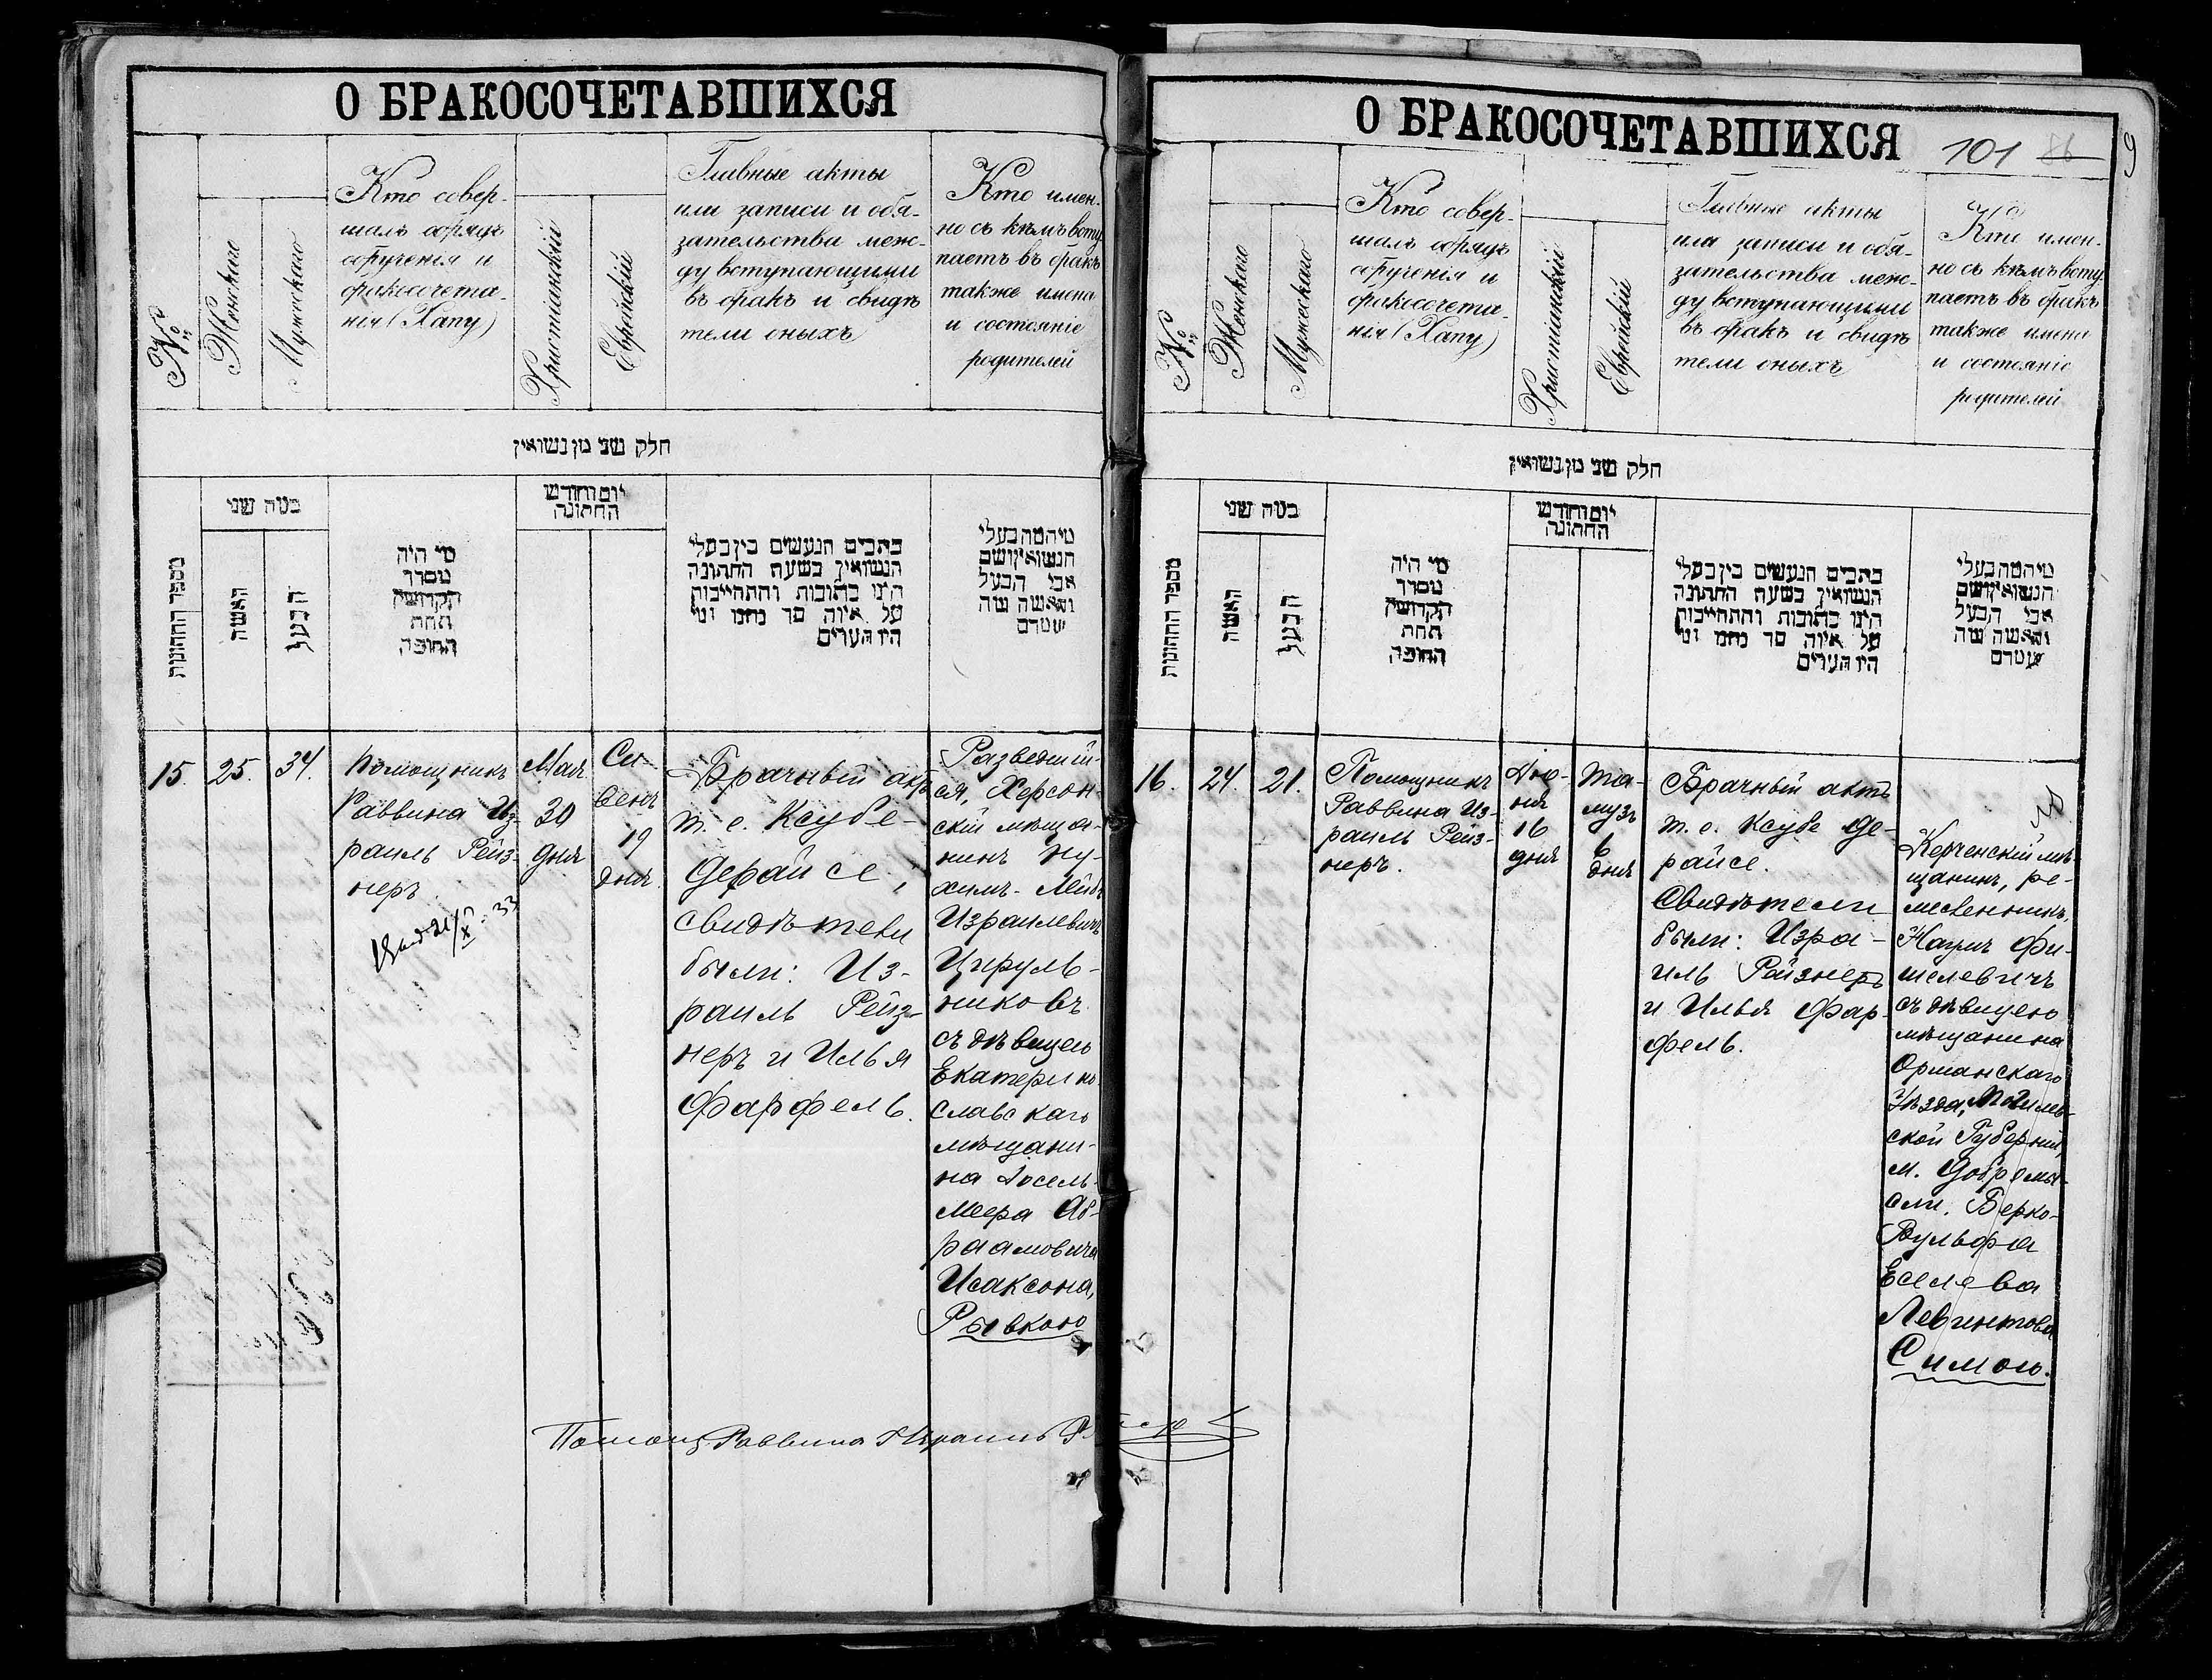 О БРАКОСОЧЕТАВШИХСЯ
№
Женскаго
Мужескаго
Кто совер-
шалъ обрядъ
обрученія и
бракосочета-
нія (Хапу)
Христіанскій
Еврейскій
Главные акты
или записи и обя-
зательства меж-
ду вступающими
въ бракъ и свидѣ
тели оныхъ
Кто имен-
но съ кѣмъ всту
паетъ въ бракъ
также имена
и состояніе
родителей
חלק שני מן נשואין
מספר החתונות
כמה שני
האשה
הבעל
מי היה
מסדר
הקדושין
תחת
החופה
יום וחודש
החתונה
כתבים הנעשים בין בעלי
הנשואין בשעת החתונה
היינו כתובות והתחייבות
על איזה סך
היו העדים
הנשואין ושם
אבי הבעל
והאשה
15. 25. 34.
Помощникъ
Раввина Из-
раиль Рейз-
неръ
Мая
30
дня
Си-
венъ
19
дня.
Брачный актъ
т. е. Ксубе-
Дерайсе,
свидѣтели
были: Из-
раиль Рейз-
неръ и Илья
Фарфель.
Разведшій-
ся, Херсон-
скій мѣща-
нинъ Ну-
химъ-Лейбъ
Израилевичъ
Цируль-
никовъ
съ дѣвицею
Екатерино-
славскаго
мѣщани-
на Іосель-
Меера Аб-
раамовича
Исаксона,
Рывкою
Помощ. Раввина Израиль
О БРАКОСОЧЕТАВШИХСЯ
101
9
№
Женскаго
Мужескаго
Кто совер-
шалъ обрядъ
обрученія и
бракосочета-
нія (Хапу)
Христіанскій
Еврейскій
Главные акты
или записи и обя-
зательства меж-
ду вступающими
въ бракъ и свидѣ
тели оныхъ
Кто имен-
но съ кѣмъ всту
паетъ въ бракъ
также имена
и состояніе
родителей
חלק שני מן נשואין
מספר החתונות
כמה שני
האשה
הבעל
מי היה
מסדר
הקדושין
תחת
החופה
יום וחודש
החתונה
כתבים הנעשים בין בעלי
הנשואין בשעת החתונה
היינו כתובות והתחייבות
על איזה סך
היו העדים
הנשואין ושם
אבי הבעל
והאשה
16. 24. 21.
Помощникъ
Раввина Из-
раиль Рейз-
неръ.
Ію-
ня
16
дня
Та-
музъ
6
дня
Брачный актъ
т. е. Ксубе Де-
райсе.
Свидѣтели
были: Изра-
иль Рейзнеръ
и Илья Фар-
фель.
Керченскій мѣ-
щанинъ, ре-
месленникъ,
Фи-
шелевичъ
съ дѣвицею
мѣщанина
Оршанскаго
Уѣзда, Могилев-
ской Губерніи,
м. Добромы-
сли, Берко-
Вульфа
Еселева
Левинтова
Симою.